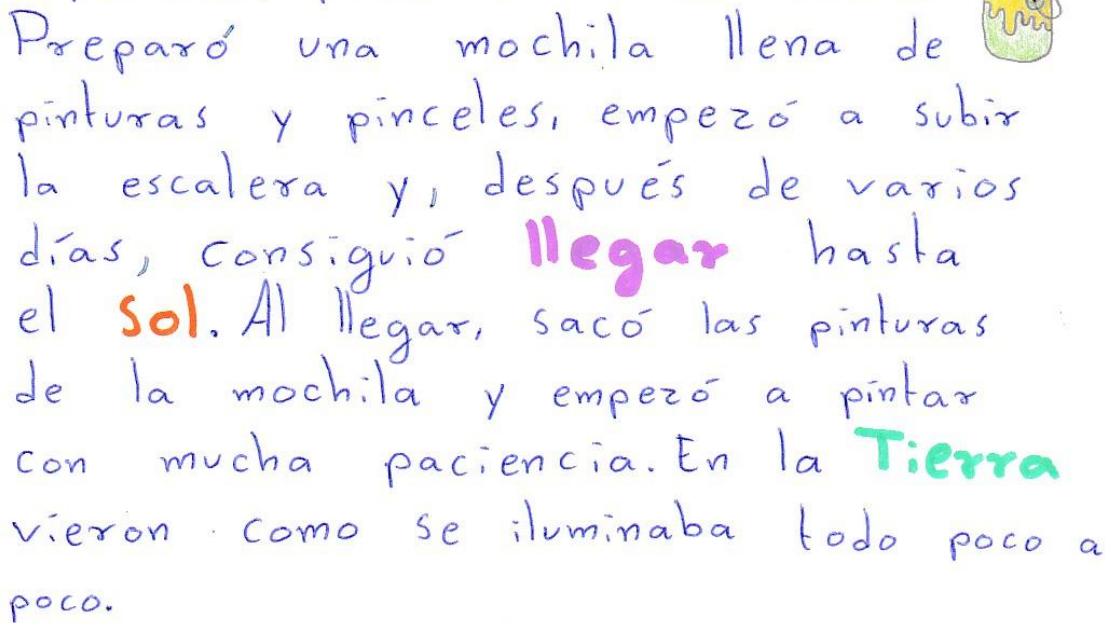 Preparó una mochila llena de
pinturas y pinceles, empezó a subir
la escalera y, después de varios
días, consiguió llegar hasta
el Sol. Al llegar, sacó las pinturas
de la mochila y empezó a pintar
con mucha paciencia. En la Tierra
vieron como se iluminaba todo poco a
poco.